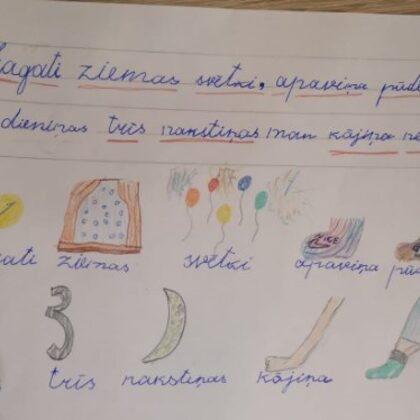 agati ziemas svētki, apaviņa pūd
dieniņas trīs nakstiņas man kājiņa ne
ati ziemas svētki apaviņa pū
trīs nakstiņas kājiņa